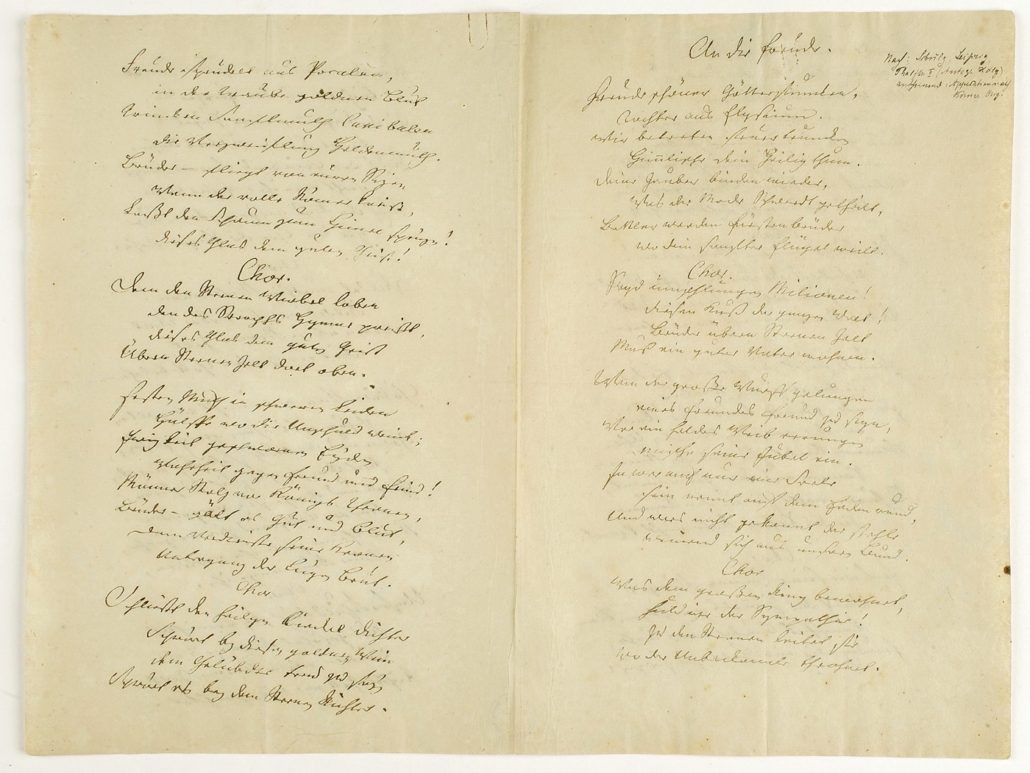 Freude sprudelt aus Pocalen,
in der Traube goldnem Blut
trinken Sanftmuth Canibalen
die Verzweiflung Heldenmuth.
Brüder – fliegt von euren Sizen
Wenn der volle Römer kreist,
Laßt den Schaum zum Himmel sprüzen!
dieses Glas dem guten Geist!
Chor.
Den der Sterne Wirbel loben
den des Seraphs Hymne preißt,
dieses Glas dem guten Geist
Überm Sternen Zelt dort oben.
Festen Muth in schwerem Leiden
Hülfe wo die Unschuld weint;
Ewigkeit geschwornen Eyden
Wahrheit gegen Freund und Feind!
Männer Stolz vor Königs Thronen,
Brüder – gält es Gut und Blut
dem Verdienste seine Kronen
Untergang der Lügen Brut.
Chor
Schließt den heilgen Zirkel dichter
Schwört bey diesem goldnen Wein
dem Gelübde treu zu seyn
Schwört es bey dem Sternen Richter.
An die Freude.
Leipzig
Freude schöner Götterfunken,
Tochter aus Elysium.
Wir betreten feuertrunken
Himmlische dein Heiligthum.
Deine Zauber binden wieder,
Was der Mode Schwerdt getheilt,
Bettler werden Fürstenbrüder
wo dein sanfter Flügel weilt.
Chor.
Seyd umschlungen Millionen!
diesen Kuß der ganzen Welt!
Brüder überm Sternen Zelt
Muß ein guter Vater wohnen.
Wem der große Wurf gelungen
eines Freundes Freund zu seyn,
Wer ein holdes Weib errungen
mische seine Jubel ein.
Ja wer auch nur eine Seele
sein nennt auf dem Erdenrund,
Und wers nicht gekonnt der stehle
weinend sich aus unserm Bund.
Chor
Was den großen Ring bewohnet,
huldige der Sympathie!
Zu den Sternen leitet sie
wo der Unbekannte thronet.